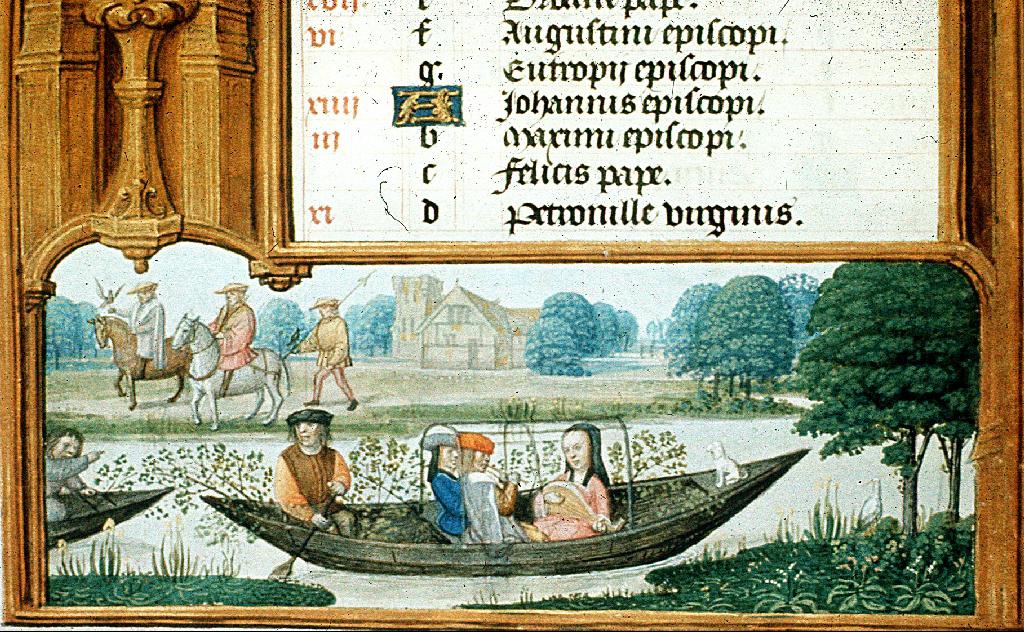 xvii e Urbani pape.
vi f Augustini episcopi.
g Eutropij episcopi.
xiiii A Johannis episcopi.
iii b Maximi episcopi.
c felicis pape.
xi d Petronille virginis.